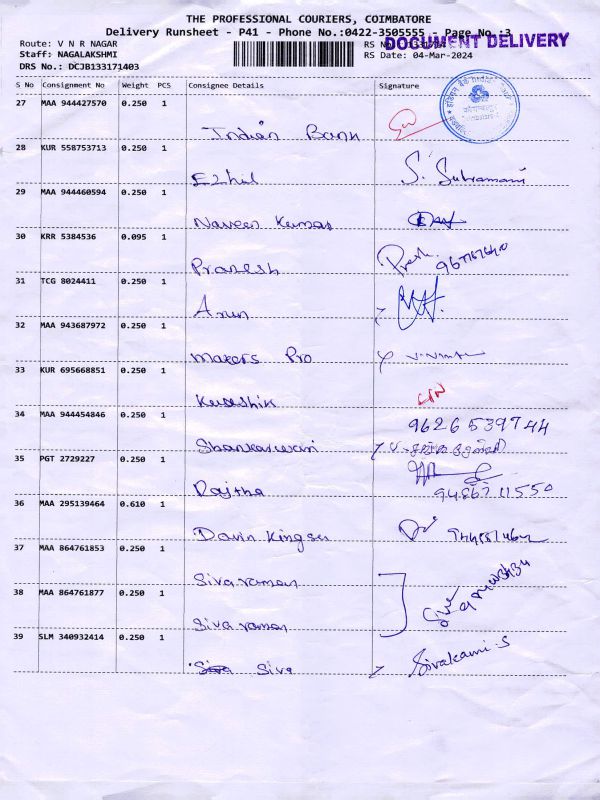 THE PROFESSIONAL COURIERS, COIMBATORE
Delivery Runsheet - P41 - Phone No.:0422-3505555 - Page No.:3
Route: V N R NAGAR
RS No
DOCUMENT DELIVERY
Staff: NAGALAKSHMI
RS Date: 04-Mar-2024
DRS No.: DCJB133171403
S No Consignment No Weight PCS Consignee Details Signature
27 MAA 944427570 0.250 1
Indian Bank
28 KUR 558753713 0.250 1
Ezhil S. Subramani
29 MAA 944460594 0.250 1
Naveen Kumar
30 KRR 5384536 0.095 1
Pranesh
31 TCG 8024411 0.250 1
Arun
32 MAA 943687972 0.250 1
Makers Pro
33 KUR 695668851 0.250 1
Kaushik
34 MAA 944454846 0.250 1 9626539744
Shankaswari
35 PGT 2729227 0.250 1
Rajitha 9486711550
36 MAA 295139464 0.610 1
Davin Kingsu
37 MAA 864761853 0.250 1
Sivaraman
38 MAA 864761877 0.250 1
Sivaraman
39 SLM 340932414 0.250 1
Siva Sivakami-S